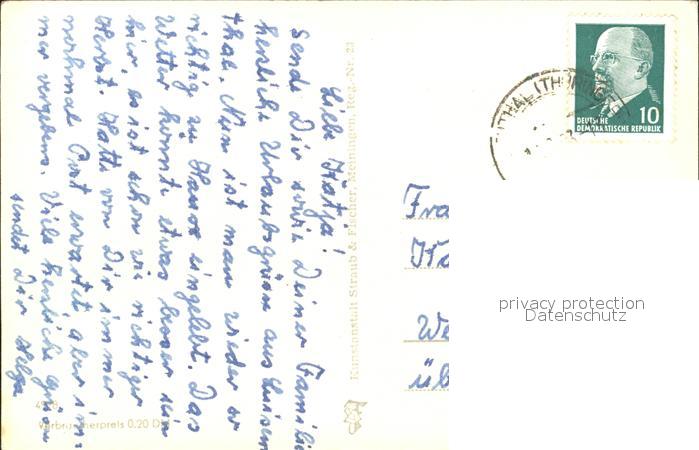 Liebe Katja!
Sende Dir sowie Deiner Familie
herzliche Urlaubsgrüße aus Luisen
thal. Nun ist man wieder so
richtig zu Hause eingelebt. Das
Wetter könnte etwas besser sein
hier, es ist schon wie richtiger
Herbst. Hatte von Dir immer
nochmal Post erwartet aber im-
mer vergebens. Viele herzliche Grüße
sendet Dir Helga
Kunstanstalt Straub & Fischer, Meiningen, Reg.-Nr. 23
Verbraucherpreis 0,20 DM
THAL (THÜRING
10
DEUTSCHE
DEMOKRATISCHE REPUBLIK
Fra
We
üb
privacy protection
Datenschutz